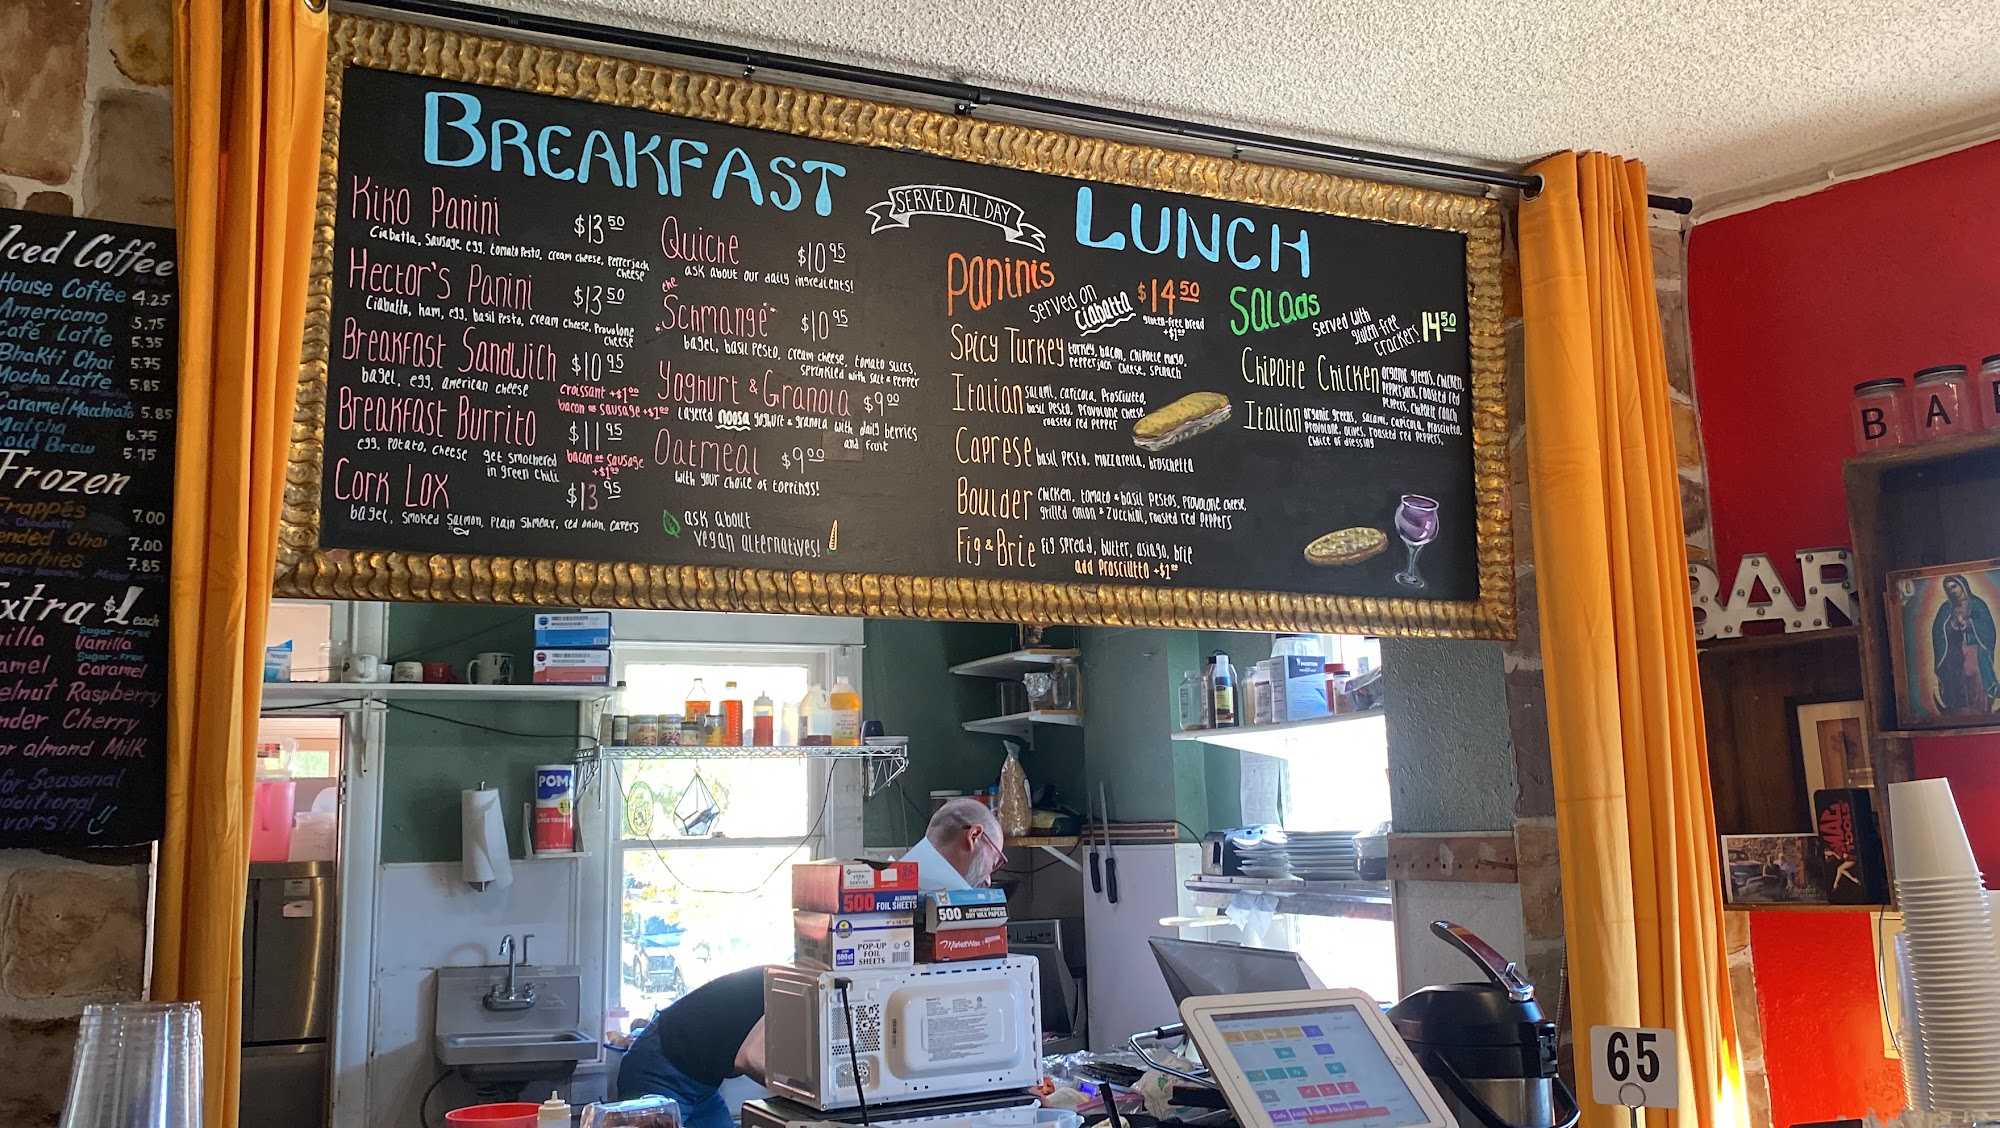 BREAKFAST
SERVED ALL DAY
LUNCH
Kiko Panini $13.50
Ciabatta, sausage, egg, tomato pesto, cream cheese, pepperjack
cheese
Hector's Panini $13.50
Ciabatta, ham, egg, basil pesto, cream cheese, provolone
cheese
Breakfast Sandwich $10.95
bagel, egg, american cheese
croissant +$1.00
bacon or sausage +$1.00
Breakfast Burrito $11.95
egg, potato, cheese
get smothered
in green chili
bacon or sausage
+$1.00
Cork Lox $13.95
bagel, smoked salmon, plain shmear, red onion, capers
Quiche $10.95
ask about our daily ingredients!
the
"Schmange" $10.95
bagel, basil pesto, cream cheese, tomato slices,
sprinkled with salt & pepper
Yoghurt & Granola $9.00
layered noosa yoghurt & granola with daily berries
and fruit
Oatmeal $9.00
with your choice of toppings!
ask about
vegan alternatives!
Paninis $14.50
served on
ciabatta
gluten-free bread
+$1.00
Spicy Turkey turkey, bacon, chipotle mayo,
pepperjack cheese, spinach
Italian salami, capicola, prosciutto,
basil pesto, provolone cheese,
roasted red pepper
Caprese basil pesto, mozzarella, bruschetta
Boulder chicken, tomato & basil pestos, provolone cheese,
grilled onion & zucchini, roasted red peppers
Fig & Brie fig spread, butter, asiago, brie
add prosciutto +$1.00
Salads
served with
gluten-free
crackers
14.50
Chipotle Chicken organic greens, chicken,
pepperjack, roasted red
peppers, chipotle ranch
Italian organic greens, salami, capicola, prosciutto,
provolone, olives, roasted red peppers,
choice of dressing
Iced Coffee
House Coffee 4.25
Americano 5.75
Café Latte 5.35
Bhakti Chai 5.75
Mocha Latte 5.85
Caramel Macchiato 5.85
Matcha 6.75
Cold Brew 5.75
Frozen
Frappés 7.00
Chocolate
ended Chai 7.00
moothies 7.85
Extra $1 each
nilla
Sugar-Free
Vanilla
amel
Sugar-Free
Caramel
elnut Raspberry
nder Cherry
or almond Milk
for Seasonal
additional
vors!!
BAR
BAR
POM
500 FOIL SHEETS
ALUMINUM
POP-UP
FOIL
SHEETS
500
DRY WAX PAPERS
MarketWax
65